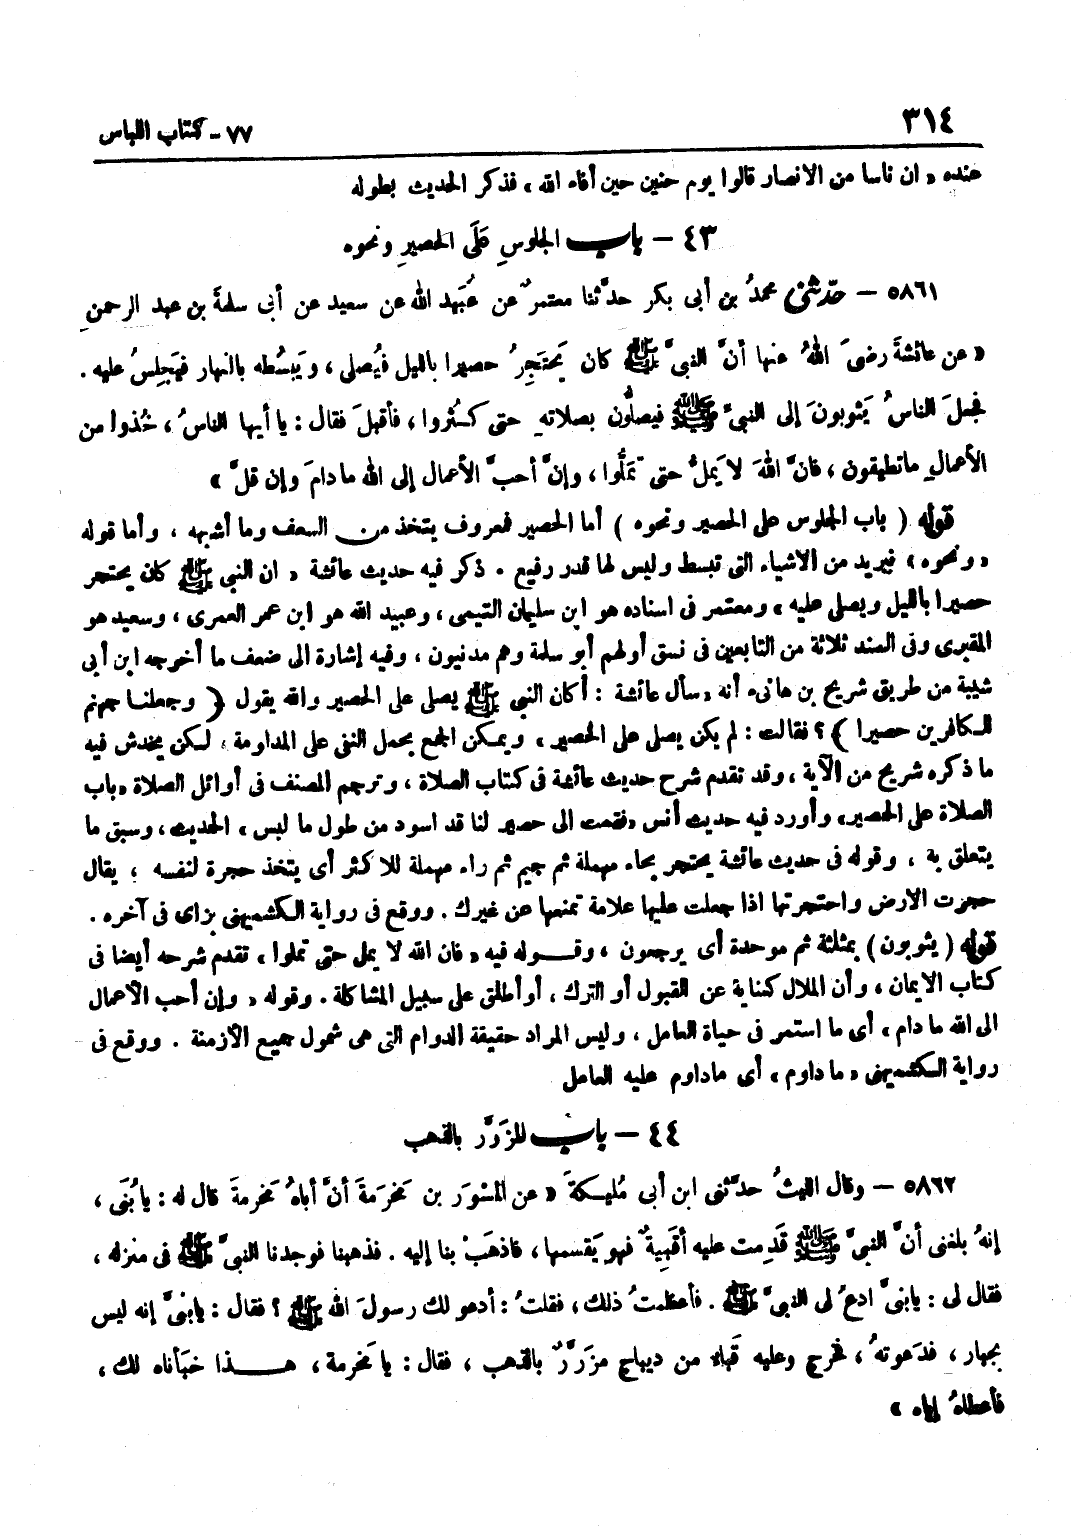 ٣١٤
٧٧ - كتاب اللباس
عنده « ان ناسا من الانصار قالوا يوم حنين حين أفاء الله » فذكر الحديث بطوله
٤٣ - باب الجلوسِ عَلَى الحصيرِ ونحوه
٥٨٦١ - حدّثنى محمدُ بن أبى بكر حدَّثنا معتمرٌ عن عُبَيد الله عن سعيد عن أبى سلمةَ بن عبد الرحمنِ
« عن عائشةَ رضىَ اللهُ عنها أنَّ النبىَّ ﷺ كان يَحتَجِرُ حصيرا بالليل فيُصلى ، ويَبسُطه بالنهار فيَجلِسُ عليه .
فجعلَ الناسُ يَثوبونَ إلى النبىِّ ﷺ فيصلُّون بصلاتهِ حتى كثُروا ، فأقبلَ فقال : يا أيها الناسُ ، خُذوا من
الأعمالِ ماتطيقون ، فانَّ اللهَ لا يَملُّ حتى تَملُّوا ، وإنَّ أحبَّ الأعمال إلى الله مادامَ وإن قلَّ »
قوله ( باب الجلوس على الحصير ونحوه ) أما الحصير فمعروف يتخذ من السعف وما أشبهه ، وأما قوله
« ونحوه » فيريد من الاشياء التى تبسط وليس لها قدر رفيع . ذكر فيه حديث عائشة « ان النبي ﷺ كان يحتجر
حصيرا بالليل ويصلى عليه » ومعتمر فى اسناده هو ابن سليمان التيمى ، وعبيد الله هو ابن عمر العمرى ، وسعيد هو
المقبرى وفى السند ثلاثة من التابعين فى نسق أولهم أبو سلمة وهم مدنيون ، وفيه إشارة الى ضعف ما أخرجه ابن أبى
شيبة من طريق شريح بن هانىء أنه « سأل عائشة : أكان النبي ﷺ يصلى على الحصير والله يقول ﴿ وجعلنا جهنم
للكافرين حصيرا ﴾ ؟ فقالت : لم يكن يصلى على الحصير » ويمكن الجمع بحمل النفى على المداومة ، لكن يخدش فيه
ما ذكره شريح من الآية ، وقد تقدم شرح حديث عائشة فى كتاب الصلاة ، وترجم المصنف فى أوائل الصلاة « باب
الصلاة على الحصير » وأورد فيه حديث أنس « فقمت الى حصير لنا قد اسود من طول ما لبس » الحديث ، وسبق ما
يتعلق به ، وقوله فى حديث عائشة يحتجر بحاء مهملة ثم جيم ثم راء مهملة للاكثر أى يتخذ حجرة لنفسه ، يقال
حجرت الارض واحتجرتها اذا جعلت عليها علامة تمنعها عن غيرك . ووقع فى رواية الكشميهنى بزاى فى آخره .
قوله ( يثوبون ) بمثلثة ثم موحدة أى يرجعون ، وقوله فيه « فان الله لا يمل حتى تملوا » تقدم شرحه أيضا فى
كتاب الايمان ، وأن الملال كناية عن القبول أو الترك ، أو أطلق على سبيل المشاكلة . وقوله « وإن أحب الاعمال
الى الله مادام » أى ما استمر فى حياة العامل ، وليس المراد حقيقة الدوام التى هى شمول جميع الأزمنة . ووقع فى
رواية الكشميهنى « ما داوم » أى ماداوم عليه العامل
٤٤ - باب المزَرَّرِ بالذهب
٥٨٦٢ - وقال الليثُ حدَّثنى ابن أبى مُليكةَ « عن المِسْوَر بن مَخرَمةَ أنَّ أباهُ مَخرمةَ قال له : يا بُنَى ،
إنهُ بلغنى أنَّ النبىَّ ﷺ قَدِمت عليه أقبيةٌ فهو يَقسمها ، فاذهَبْ بنا إليه . فذهبنا فوجدنا النبىَّ ﷺ فى منزله ،
فقال لى : يابنىَّ ادعُ لى النبىَّ ﷺ . فأعظمتُ ذلك ، فقلتُ : أدعو لك رسولَ الله ﷺ ؟ فقال : يابنىَّ إنه ليس
بجبار ، فدَعوتهُ ، فخرج وعليه قَباء من ديباج مزَرَّرٌ بالذهب ، فقال : يا مَخرمة ، هذا خبَأناه لك ،
فأعطاهُ إياه »